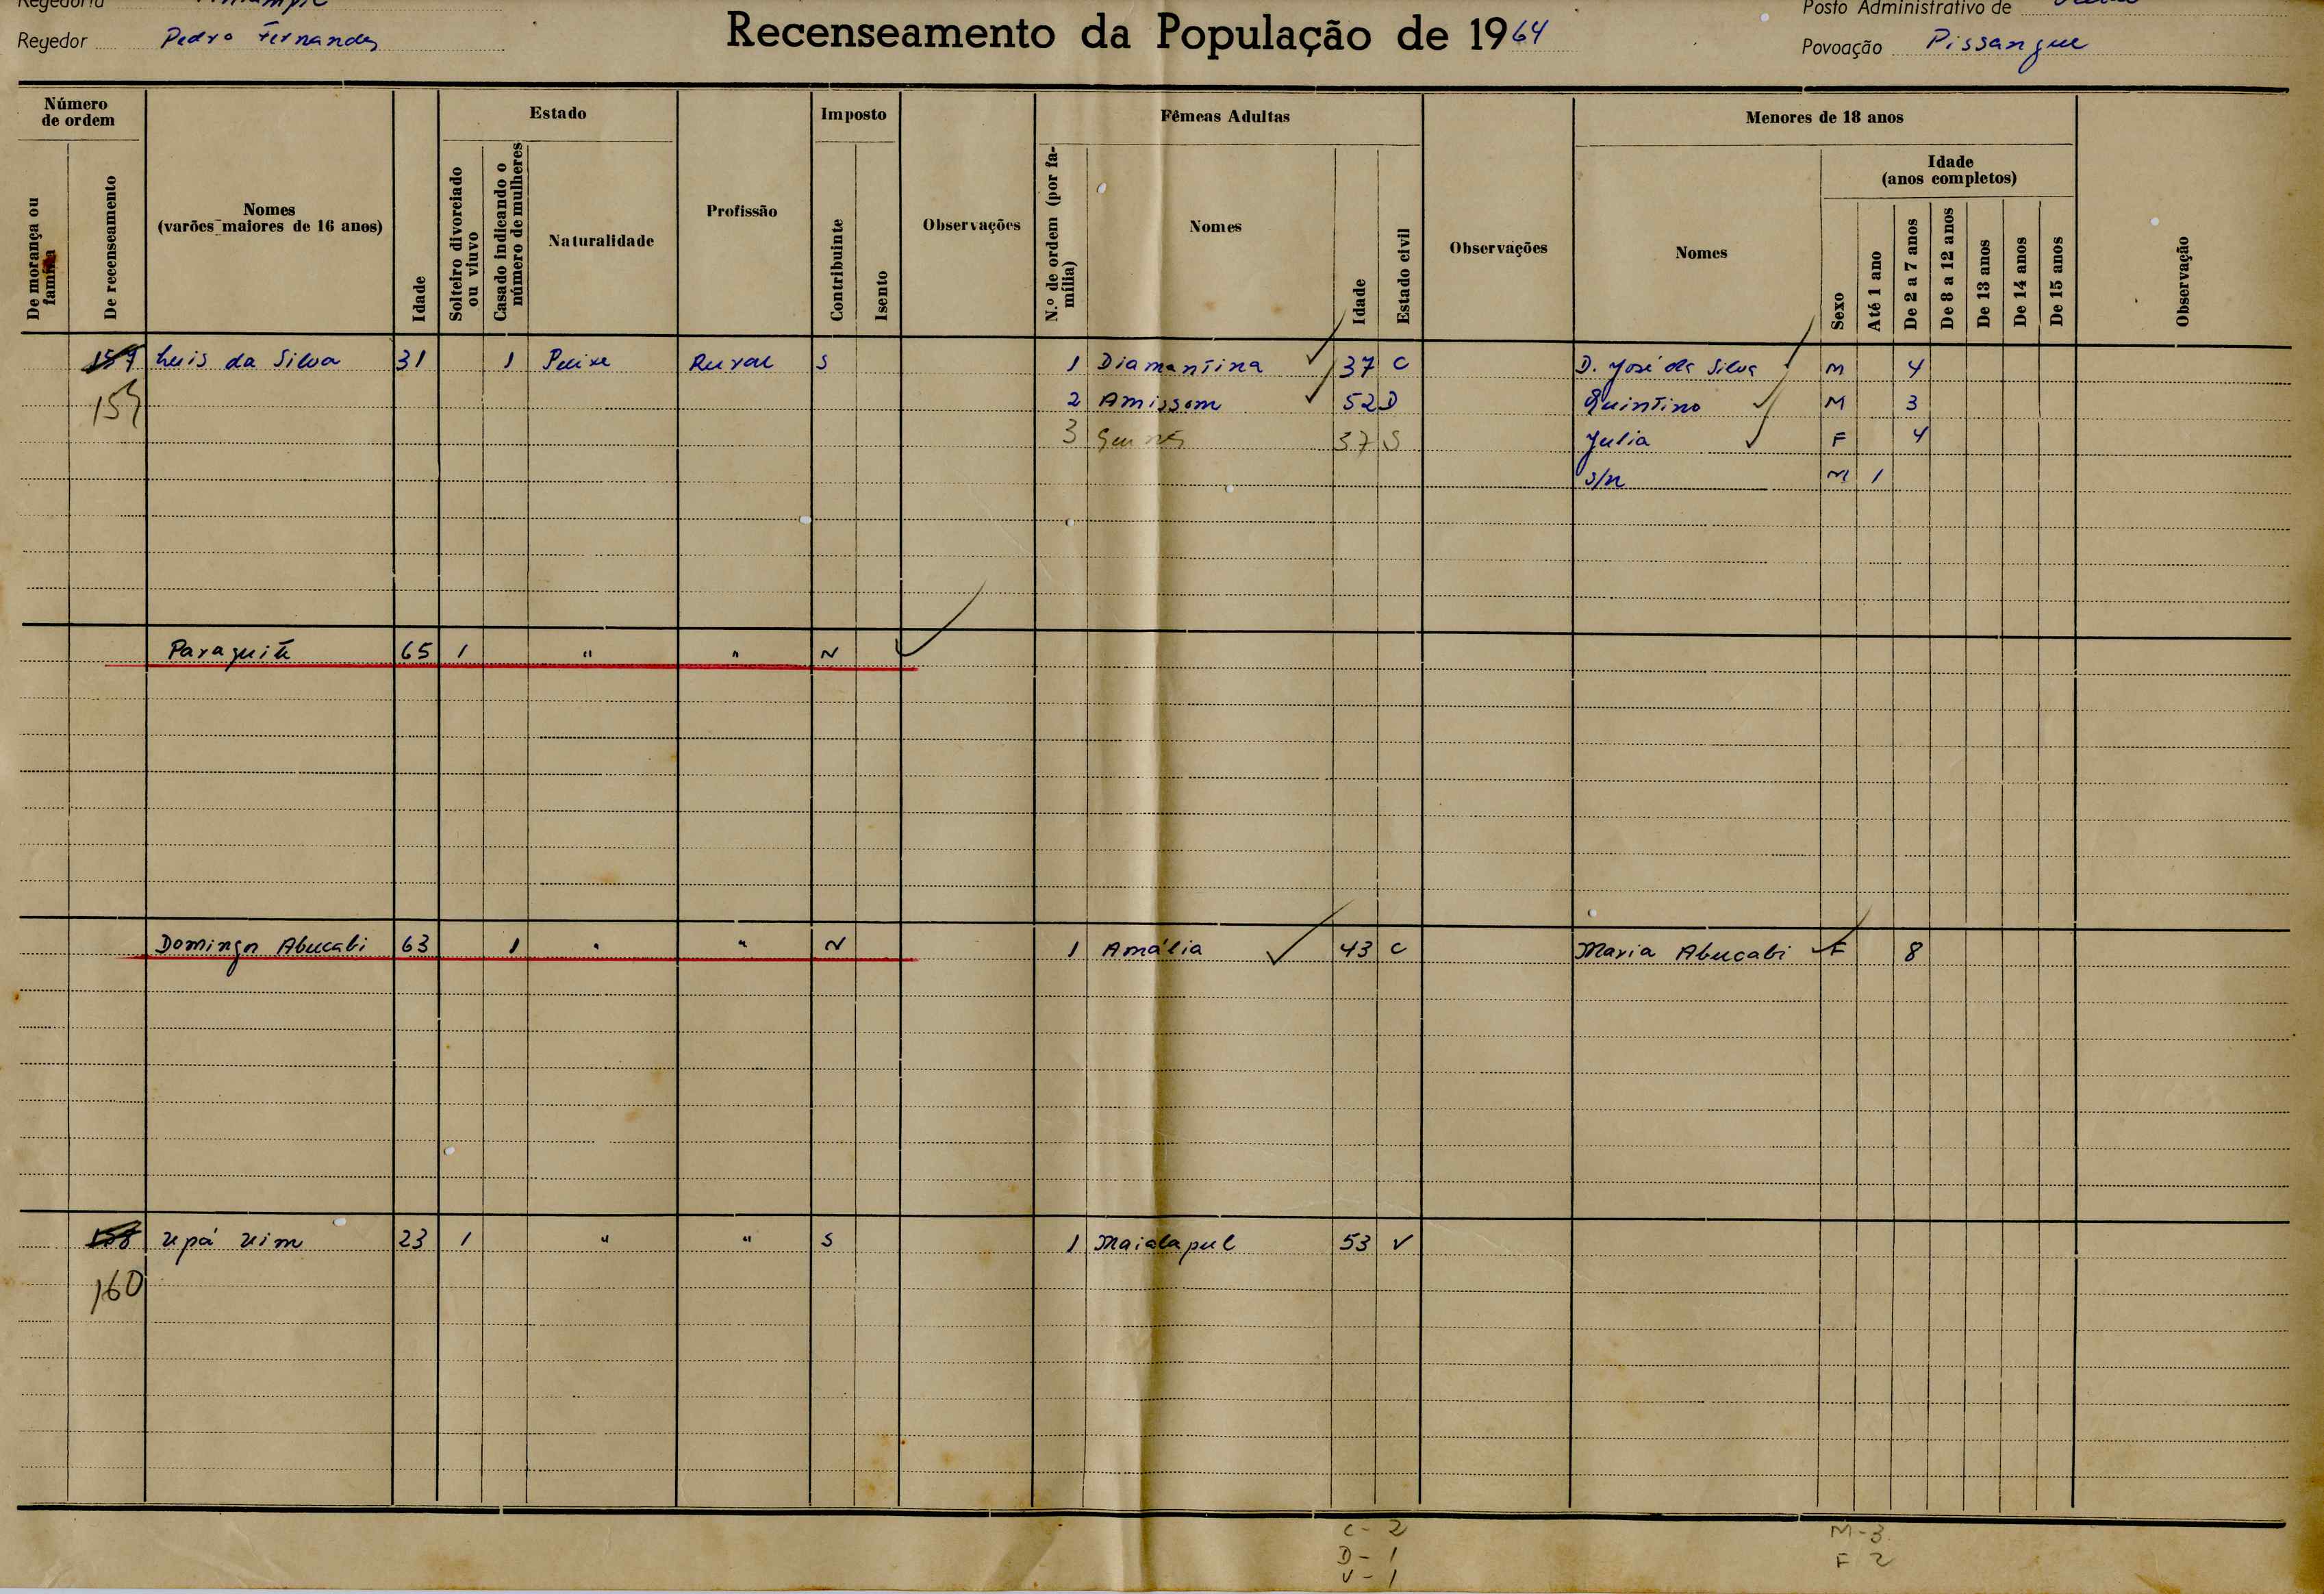 Regedoria
Posto Administrativo de
Regedor Pedro Fernandes
Recenseamento da População de 1964
Povoação Pissangue
Número de ordem
Estado
Imposto
Fêmeas Adultas
Menores de 18 anos
De morança ou família
De recenseamento
Nomes (varões maiores de 16 anos)
Idade
Solteiro divorciado ou viuvo
Casado indicando o número de mulheres
Naturalidade
Profissão
Contribuinte
Isento
Observações
N.º de ordem (por família)
Nomes
Idade
Estado civil
Observações
Nomes
Sexo
Idade (anos completos)
Até 1 ano
De 2 a 7 anos
De 8 a 12 anos
De 13 anos
De 14 anos
De 15 anos
Observação
157 Luis da Silva 31 1 Peixe Rural S 1 Diamantina 37 C D. José da Silva M 4
159 2 Amissom 52 D Quintino M 3
3 37 S Julia F 4
s/n M 1
Paraguitê 65 1 " " N
Domingo Abucabi 63 1 " " N 1 Amália 43 C Maria Abucabi F 8
158 Upá Uim 23 1 " " S 1 Maialapul 53 V
160
C - 2 M - 3
D - 1 F 2
V - 1